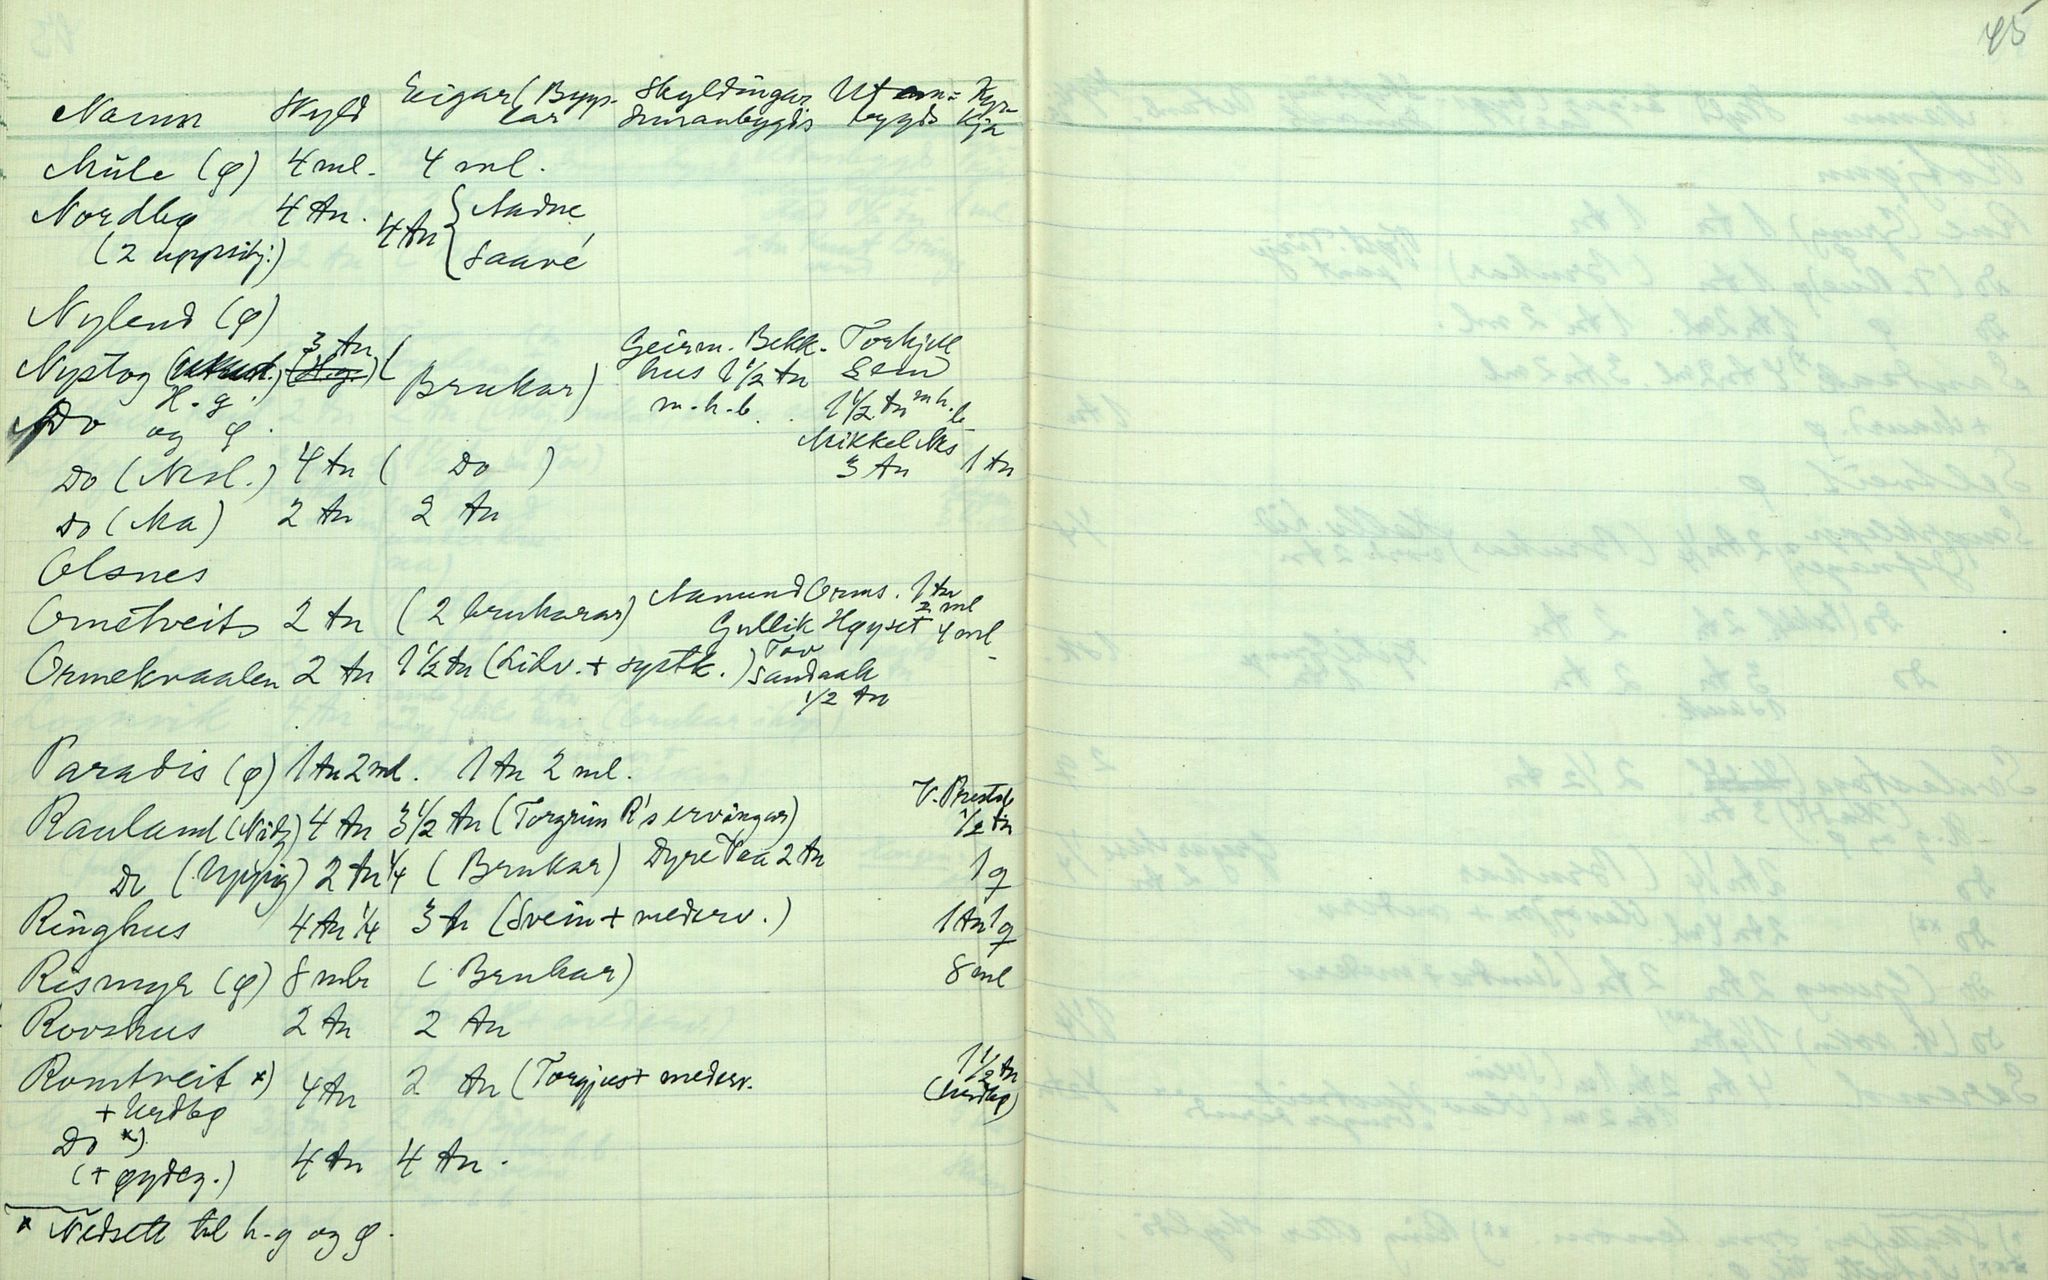 45
Namn Skyld Eigar (Bygs- Skyldingar Utan= Kyr-
lar innanbygds bygds kja
Mule (φ) 4 ml. 4 ml.
Nordbø 4 tn. 4 tn { Aadne
(2 uppsitj.) Saave
Nyland (φ)
Nystog H.g.) 3 tn (Brukar) Geirm. Bekk- Torkjell
hus 1 1/2 tn Sem
m.h.b. 1 1/2 tn m.h.b.
Do og φ.
Mikkel Nes
Do (Nesl.) 4 tn ( Do ) 3 tn 1 tn
Do (Aa) 2 tn 2 tn
Olsnes
Ormetveit 2 tn (2 brukarar) Aamund Orms. 1 tn 2 ml
Gullik Høyset 4 ml
Ormekvaalen 2 tn 1 1/2 tn (Lidv. + systk.) Tov
Sandaak
1/2 tn
Paradis (φ) 1 tn 2 ml. 1 tn 2 ml.
V. Prestb
Rauland (Nidg) 4 tn 3 1/2 tn (Torgrim R's ervingar) 1/2 tn
Do (Uppig) 2 tn 1/4 (Brukar) Dyre Vaa 2 tn 1 q
Ringhus 4 tn 1/4 3 tn (Svein + mederv.) 1 tn 1 q
Rismyr (φ) 8 mbr (Brukar) 8 ml
Rovshus 2 tn 2 tn
Romtveit x) 4 tn 2 tn (Torgjus + mederv. 1 1/2 tn
+ Urdbø (Urdbø)
Do x)
(+ øydeg.) 4 tn 4 tn.
x Nedsett til h.g og φ.